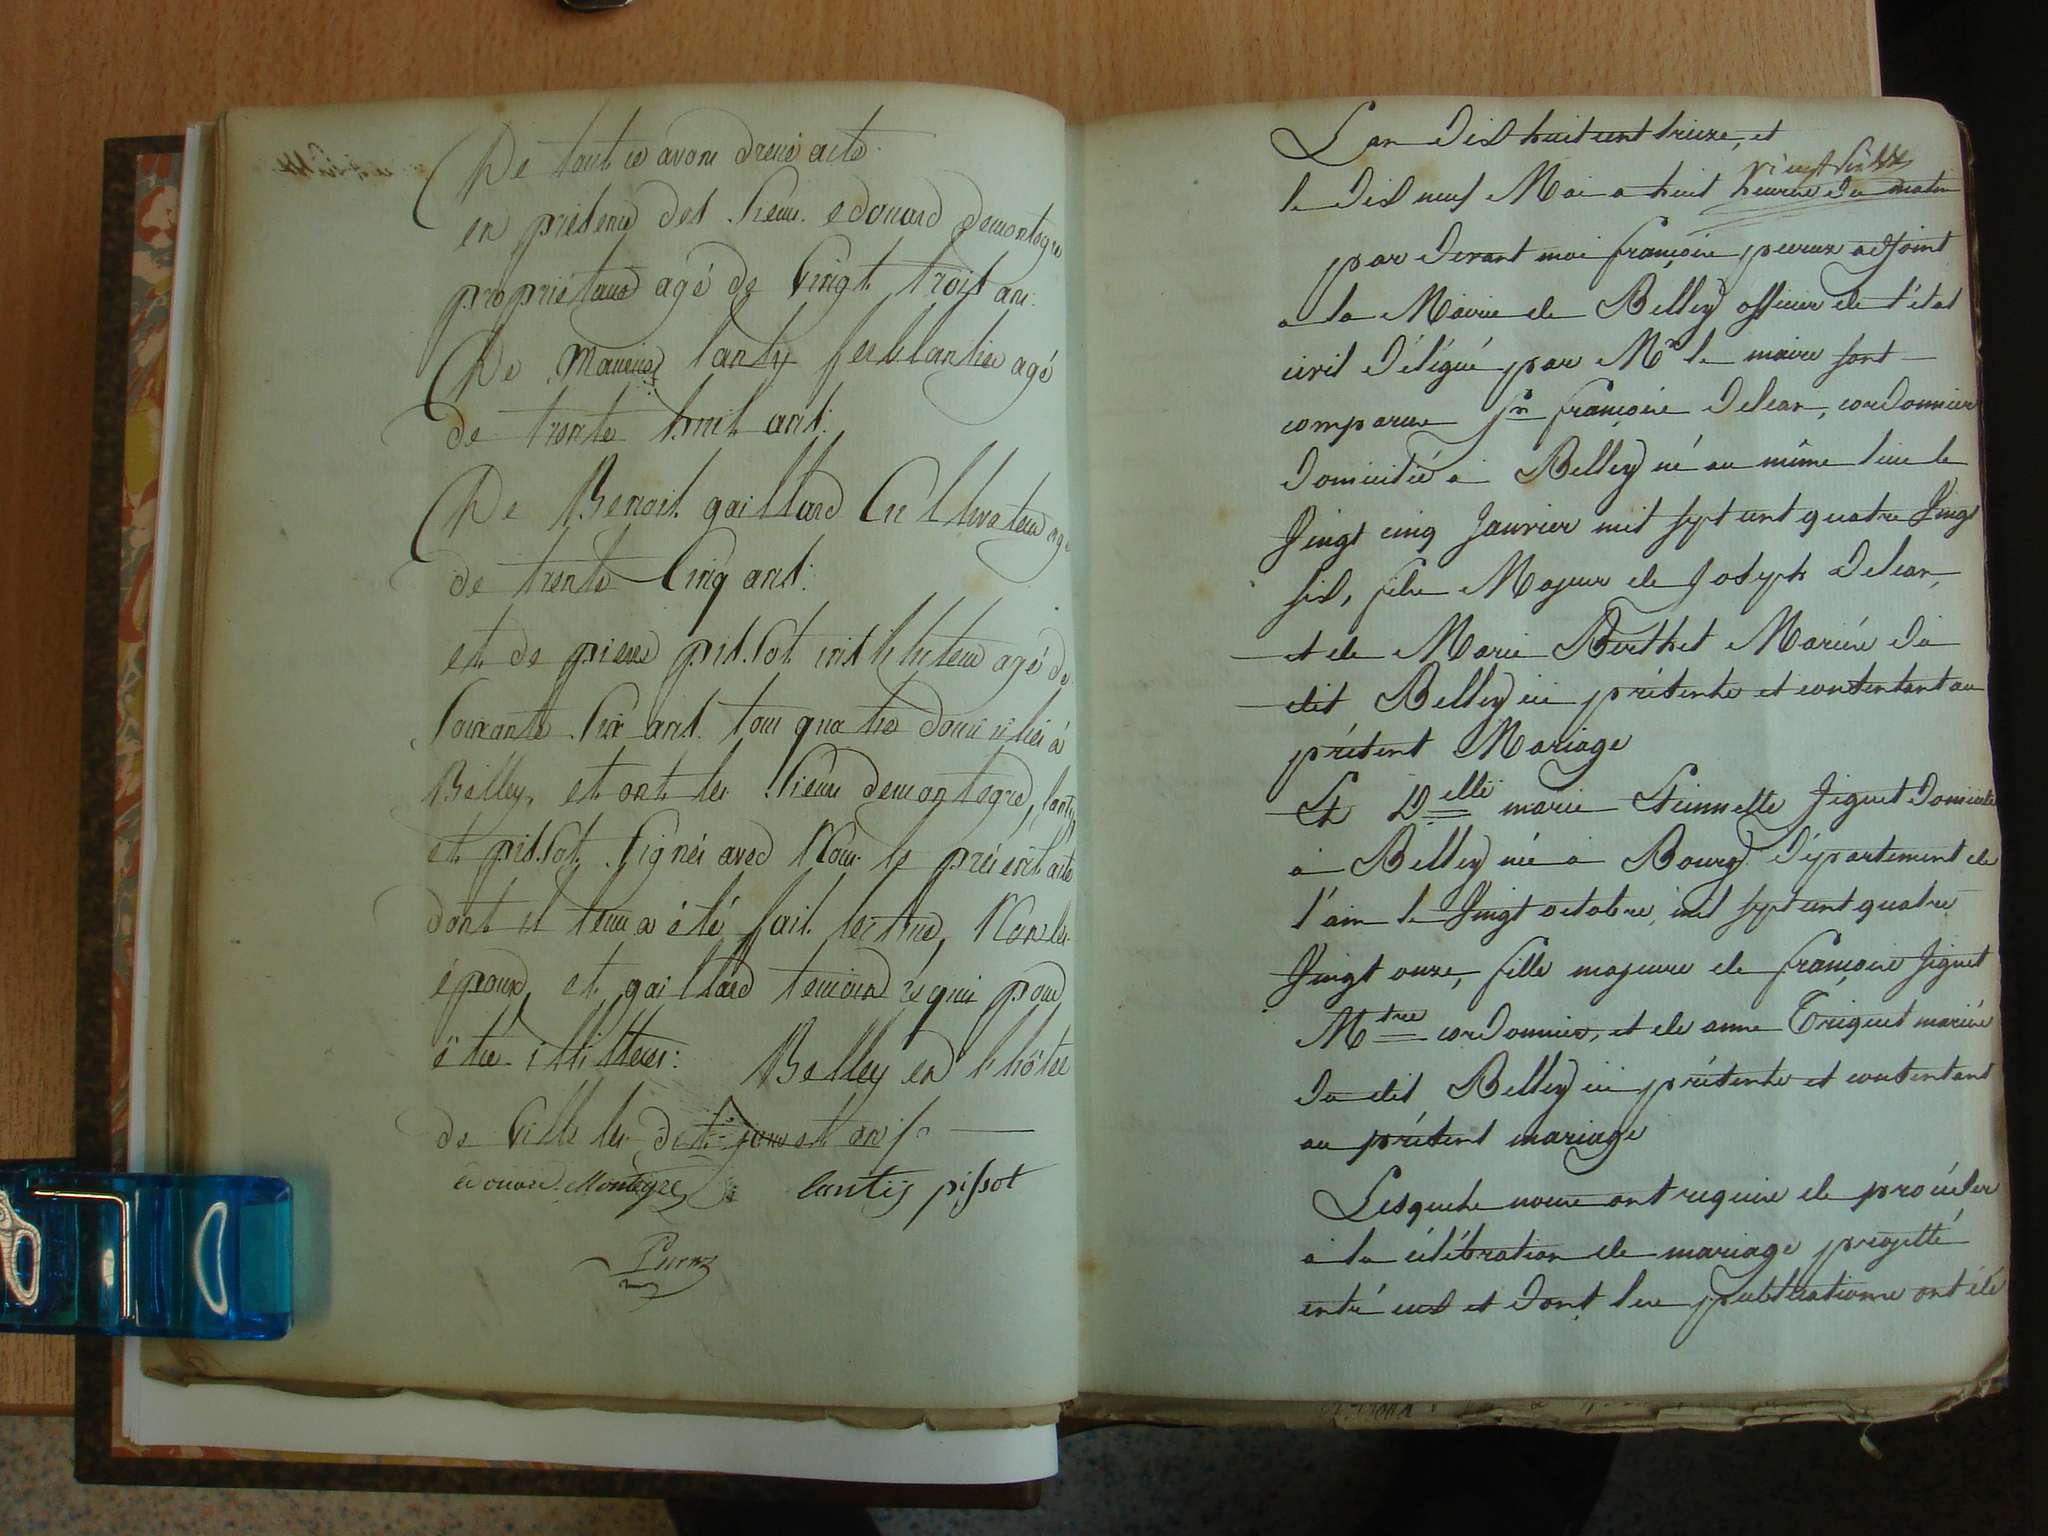 De tout ce avons dressé acte
en présence des sieurs edouard demontegre
propriétaire agé de vingt trois ans.
De Maurice lantij ferblantier agé
de trente huit ans.
De Benoit gaillard Cultivateur agé
de trente Cinq ans.
et de pierre pissot instituteur agé de
soixante six ans tous quatre domiciliés à
Belley, et ont les sieurs demontegre, lantij
et pissot signés avec Nous le présent acte
dont il leur a été fait lecture, Non les
époux et gaillard temoins requis pour
être illitterés. Belley en l'hôtel
de ville les dits jour et an
edouard Montegre lantij pissot
Peeruz
L'an dix huit cent treize, et
le dix neuf Mai a huit heures du matin
par devant moi françois adjoint
a la Mairie de Belley officier de l'état
civil délégué par Mr le maire sont
comparus Sr françois Delean, cordonnier
domicilié a Belley né au même lieu le
Vingt cinq Janvier mil sept cent quatre Vingt
six, fils Majeur de Joseph Delean,
et de Marie Berthet Mariés du
dit Belley ici présents et consentant au
présent Mariage
Et Delle marie Etiennette Figuet domiciliée
a Belley née a Bourg département de
l'ain le Vingt octobre, mil sept cent quatre
Vingt onze, fille majeure de françois Figuet
Mtre cordonnier, et de anne Triquet mariés
du dit Belley ici présents et consentant
au présent mariage
Lesquels nous ont requis de procéder
a la célébration de mariage projetté
entré eux et dont les publications ont été